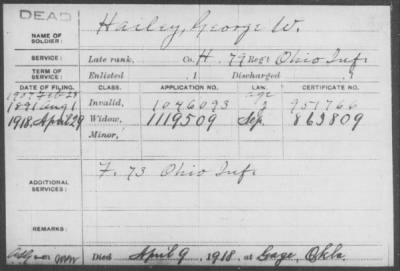 DEAD
NAME OF SOLDIER: Hailey, George W.
SERVICE: Late rank, Co. H. 79 Reg't Ohio Inf.
TERM OF SERVICE: Enlisted , 1 Discharged , 1
DATE OF FILING. CLASS. APPLICATION NO. LAW. CERTIFICATE NO.
1907 Feb 23 age
1891 Aug 1 Invalid, 1046093 2 951766
1918. April 29 Widow, 1119509 Sep. 863809
Minor,
ADDITIONAL SERVICES: F. 73 Ohio Inf.
REMARKS:
Died April 9, 1918, at Gage, Okla.